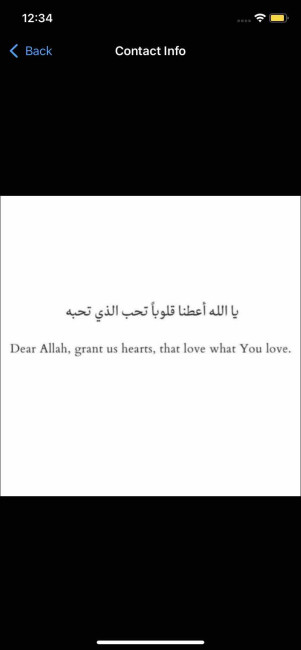 12:34
Back
Contact Info
يا الله أعطنا قلوباً تحب الذي تحبه
Dear Allah, grant us hearts, that love what You love.